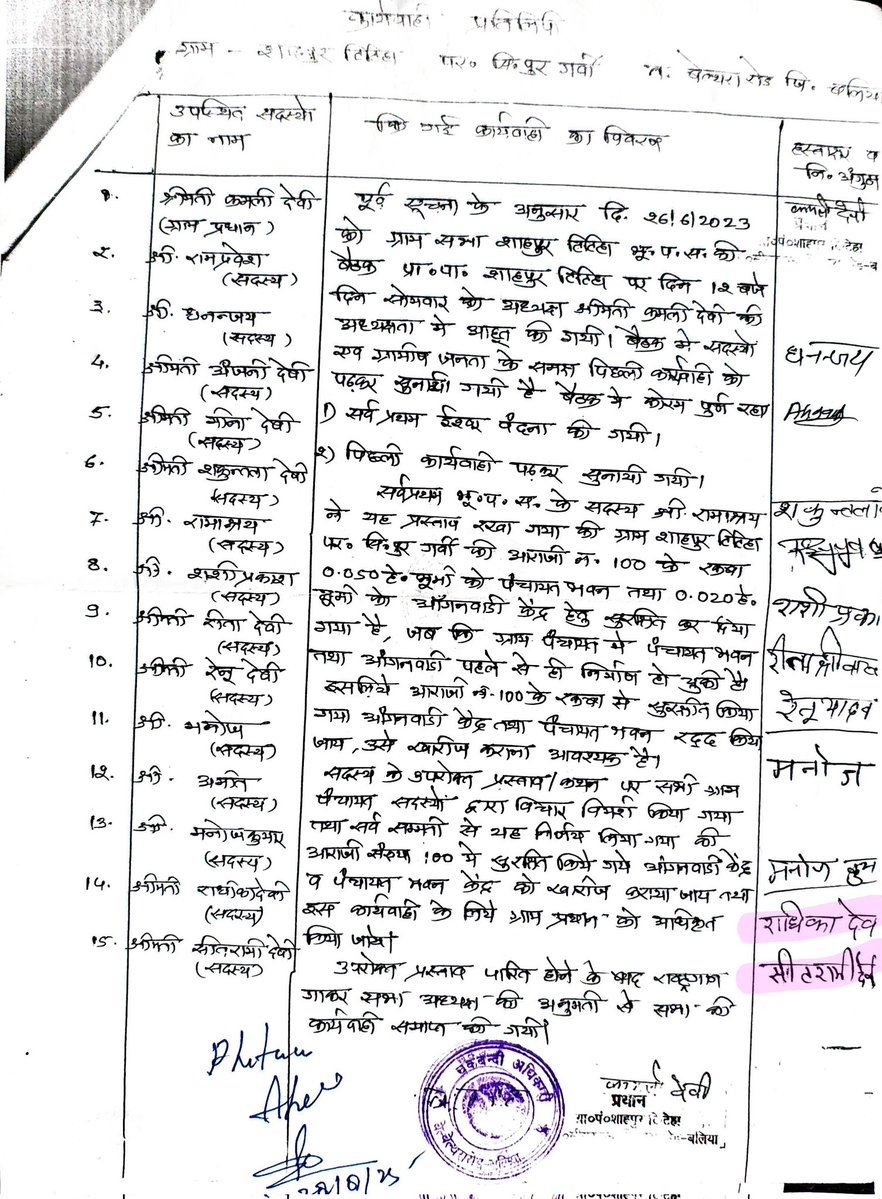 कार्यवाही प्रतिलिपि
ग्राम - शाहपुर टिटिहा पर० सि०पुर गर्वी त: बेल्थरा रोड जि. बलिया
उपस्थित सदस्यो का नाम
कि गई कार्यवाही का विवरण
हस्ताक्षर व
नि० अंगुठा
१. श्रीमती कमली देवी
(ग्राम प्रधान)
२. श्री. रामप्रवेश
(सदस्य)
३. श्री. धनन्जय
(सदस्य)
4. श्रीमती अंजनी देवी
(सदस्य)
5. श्रीमती मीना देवी
(सदस्य)
6. श्रीमती शकुन्तला देवी
(सदस्य)
7. श्री. रामाश्रय
(सदस्य)
8. श्री. शशी प्रकाश
(सदस्य)
9. श्रीमती रीता देवी
(सदस्य)
10. श्रीमती रेनू देवी
(सदस्य)
11. श्री. मनोज
(सदस्य)
१२. श्री.
(सदस्य)
13. श्री. मनोज कुमार
(सदस्य)
14. श्रीमती राधीका देवी
(सदस्य)
15. श्रीमती सीतारामी देवी
(सदस्य)
पूर्व सूचना के अनुसार दि. २6/6/2023
को ग्राम सभा शाहपुर टिटिहा भू.प.स. की
बैठक प्रा०पा० शाहपुर टिटिहा पर दिन 1२ बजे
दिन सोमवार को अध्यक्ष श्रीमिती कमली देवी की
अध्यक्षता मे आहूत की गयी। बैठक मे सदस्यो
एव ग्रामीण जनता के समक्ष पिछली कार्यवाही को
पढ़कर सुनायी गयी है बैठक मे कोरम पुर्ण रहा
1) सर्व प्रथम ईश्वर वंदना की गयी।
२) पिछली कार्यवाही पढ़कर सुनायी गयी।
सर्वप्रथम भू.प.स. के सदस्य श्री रामाश्रय
ने यह प्रस्ताव रखा गया की ग्राम शाहपुर टिटिहा
पर० सि०पुर गर्वी की आराजी न. 100 के रकबा
0.050हे. भूमी को पंचायत भवन तथा 0.020हे.
भूमी को आँगनवाडी केंद्र हेतु सुरक्षित कर दिया
गया है, जब कि ग्राम पंचायत मे पंचायत भवन
तथा आंगनवाडी पहले से ही निर्माण हो चुकी है।
इसलिये आराजी न.100 के रकबा से सुरक्षीत किया
गया आँगनवाडी केंद्र तथा पंचायत भवन रद्द किया
जाय, उसे खारीज कराना आवश्यक है।
सदस्य के उपरोक्त प्रस्ताव/कथन पर सभी ग्राम
पंचायत सदस्यों द्वारा विचार विमर्श किया गया
तथा सर्व सम्मती से यह निर्णय लिया गया की
आराजी संख्या 100 मे सुरक्षित किये गये आँगनवाडी केंद्र
व पंचायत भवन केंद्र को खारीज कराया जाय तथा
इस कार्यवाही के लिये ग्राम प्रधान को अधिकृत
किया जाये।
उपरोक्त प्रस्ताव पारित होने के बाद राष्ट्रगान
गाकर सभा अध्यक्ष की अनुमती से सभा की
कार्यवाही समाप्त की गयी।
कमली देवी
धनन्जय
शकुन्तला
शशी प्रका
रीता श्रीवास्
रेनू यादव
मनोज
मनोज कुम
राधिका देव
सीतारामी देवी
चकबन्दी अधिकारी
देवी
प्रधान
ग्रा०पं०शाहपुर टिटिहा
-बलिया